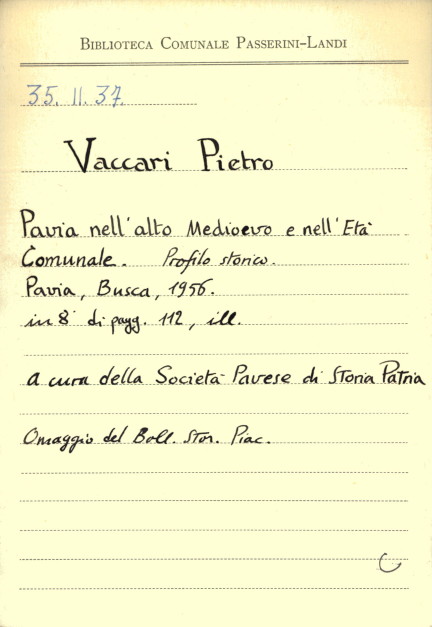 BIBLIOTECA COMUNALE PASSERINI-LANDI
35. II. 37.
Vaccari Pietro
Pavia nell'alto Medioevo e nell'Età
Comunale. Profilo storico.
Pavia, Busca, 1956.
in 8° di pagg. 112, ill.
a cura della Società Pavese di Storia Patria
Omaggio del Boll. Stor. Piac.
C